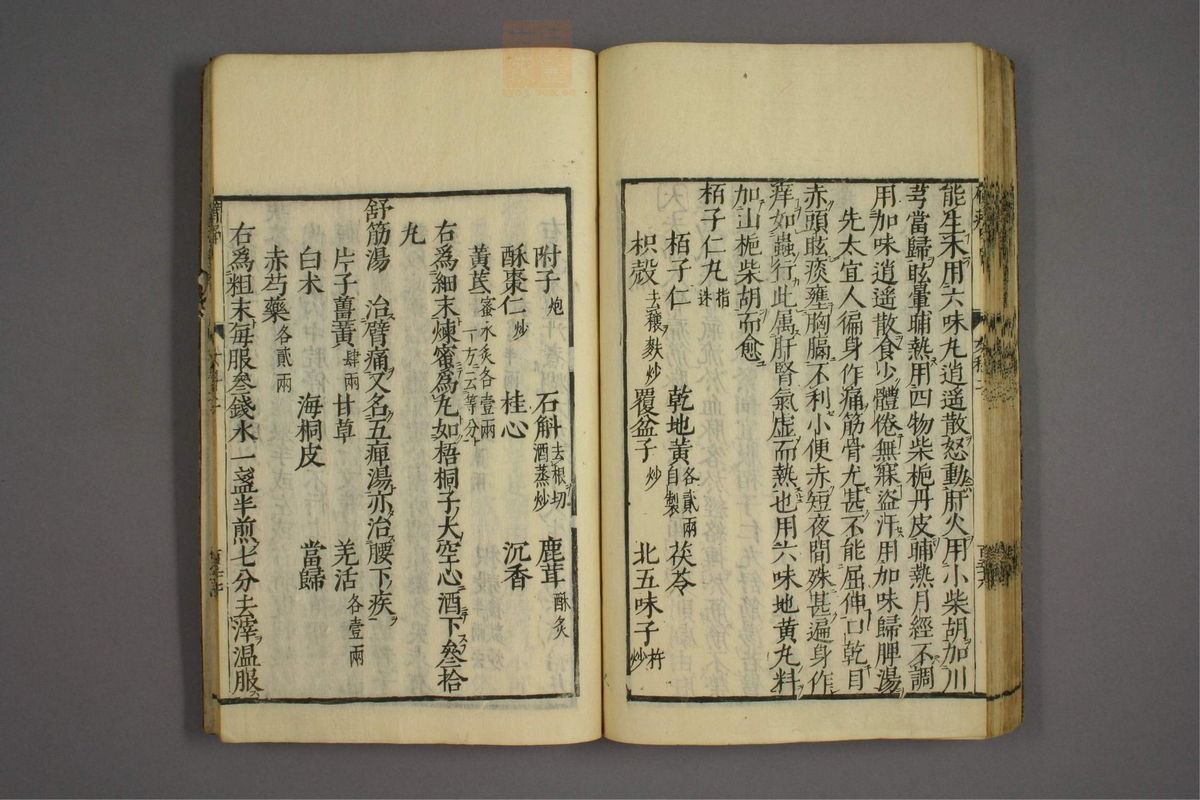 能生不用六味丸逍遥散怒動肝火用小柴胡加川
芎當歸眩暈晡熱用四物柴梔丹皮晡熱月經不調
用加味逍遥散食少體倦無寐盜汗用加味歸脾湯
先太宜人徧身作痛筋骨尤甚不能屈伸口乾目
赤頭眩痰壅胸膈不利小便赤短夜間殊甚遍身作
痒如蟲行此属肝腎氣虛而熱也用六味地黄丸料
加山梔柴胡而愈
栢子仁丸 指迷
栢子仁 乾地黄各貳兩自製 茯苓
枳殼去穰麩炒 覆盆子炒 北五味子炒
附子炮 石斛去根切酒蒸炒 鹿茸酥炙
酥棗仁炒 桂心 沉香
黄芪蜜水炙各壹兩一方云等分
右爲細末煉蜜爲丸如梧桐子大空心酒下叄拾
丸
舒筋湯 治臂痛又名五痺湯亦治腰下疾
片子薑黄肆兩 甘草 羌活各壹兩
白术 海桐皮 當歸
赤芍藥各貳兩
右爲粗末每服叄錢水一盞半煎七分去滓温服